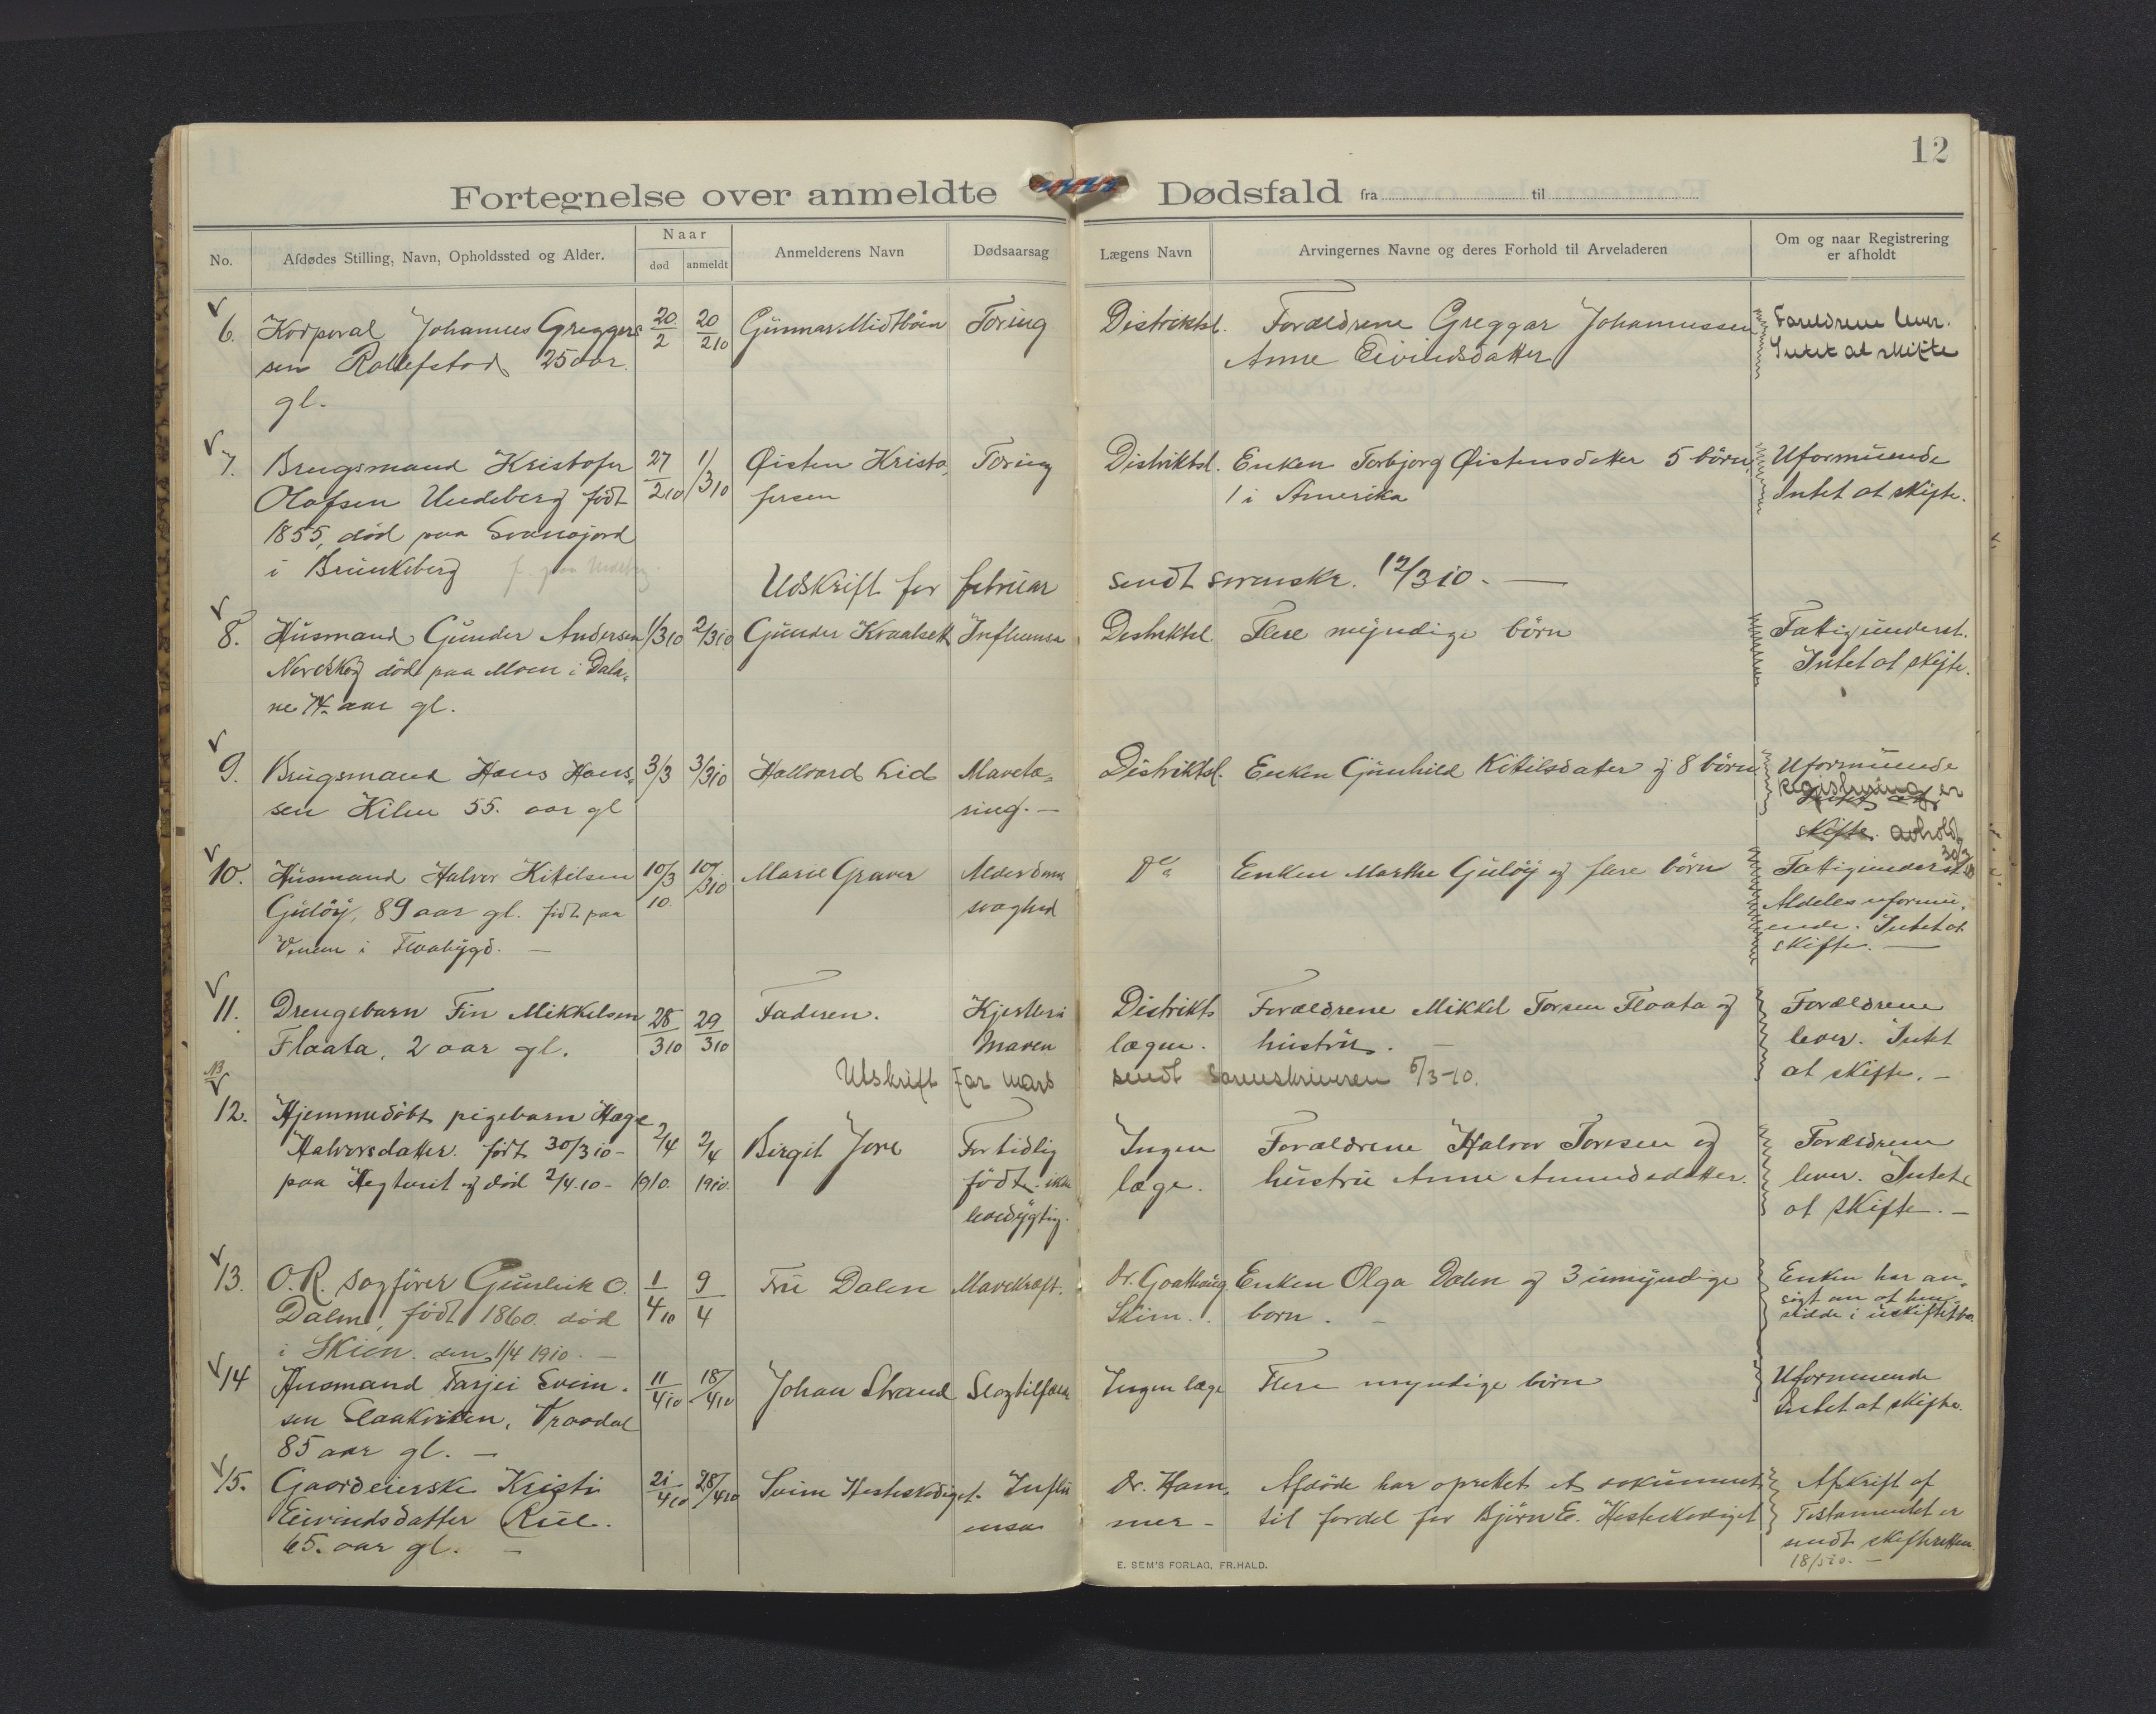 12
Fortegnelse over anmeldte Dødsfald fra til
No.
Afdødes Stilling, Navn, Opholdssted og Alder.
Naar
død
anmeldt
Anmelderens Navn
Dødsaarsag
Lægens Navn
Arvingernes Navne og deres Forhold til Arveladeren
Om og naar Registrering
er afholdt
6. Korporal Johannes Greggers 20/2 20/210 Gunnar Midtbøen Tæring Distriktsl. Forældrene Greggar Johannussen Forældrene lever.
sen Rollefstad 25 aar Anne Eivindsdatter Intet at skifte
gl.
7. Brugsmand Kristofer 27/210 1/310 Øisten Kristo, Tæring Distriktsl. Enken Torbjorg Øistensdatter 5 børn, Uformuende
Olafsen Undeberg født fersen 1 i Amerika Intet at skifte.
1855, død paa
i Brunkeberg
Udskrift for februar sendt sorenskr. 12/310. —
8. Husmand Gunder Andersen 1/310 2/310 Gunder Kvaalsett Influensa Distriktsl. Flere myndige børn Fattigunderst.
Nordskog død paa Moen i Dala, Intet at skifte.
ne 74 aar gl.
9. Brugsmand Hans Hans, 3/3 3/310 Hallvard Lid Maveta, Distriktsl. Enken Gunhild Kitilsdater og 8 børn Uformuende
sen Kilen 55. aar gl ring. — Registrering er
Intet at
skifte. avholdt
30/3
10. Husmand Halvor Kitilsen 10/3 10. 10/310 Marie Graver Alderdoms Do Enken Marthe Guløy og flere børn Fattigunderst
Guløy, 89 aar gl. født paa svaghed Aldeles uformu,
i Flaabygd. — ende. Intet at
skifte. —
11. Drengebarn Fin Mikkelsen 28/310 29/310 Faderen. Kjertler i Distrikts Forældrene Mikkel Torsen Flaata og Forældrene
Flaata, 2 aar gl. Maven lægen. hustru. — lever. Intet
at skifte. —
NB
Utskrift for mars sendt Sorenskriveren 5/3-10.
12. Hjemmedøbt pigebarn Hæge 2/4 1910. 2/4 1910. Birgit Jore For tidlig Ingen Forældrene Halvor Toresen og Forældrene
Halvorsdatter. født 30/3 10 - født. ikke læge. hustru Anne Amundsdatter. lever. Intet
paa og død 2/4-10 - levedygtig. at skifte. —
13. O.R. sagfører Gunleik O. 1/410 9/4 Fru Dalen Mavekræft. Dr. Goathaug Enken Olga Dalen og 3 umyndige Enken har an,
Dalen, født 1860. død Skien. børn. — søgt om at hen
i Skien. den 1/4 1910. — sidde i uskiftet bo.
14 Husmand Tarjei Svein. 11/410 18/410 Johan Strand Slagtilfælde Ingen læge Flere myndige børn Uformuende
sen Slaakviken, Vraadal Intet at skifte.
85 aar gl. —
15. Gaardeierske Kristi 21/410 28/410 Svein Hesteskodiget. Influ Dr. Ham, Afdøde har oprettet et dokument Afskrift af
Eivindsdatter Rue. ensa mer - til fordel for Bjørn E. Hesteskodiget Testamentet er
65. aar gl. — sendt skifteretten.
18/510. —
E. SEM'S FORLAG, FR.HALD.